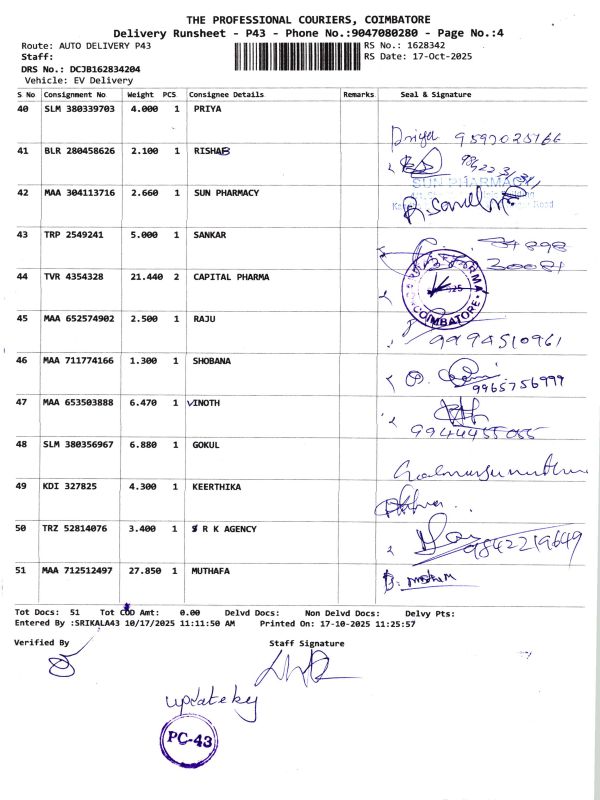 THE PROFESSIONAL COURIERS, COIMBATORE
Delivery Runsheet - P43 - Phone No.:9047080280 - Page No.:4
Route: AUTO DELIVERY P43 RS No.: 1628342
Staff: RS Date: 17-Oct-2025
DRS No.: DCJB162834204
Vehicle: EV Delivery
S No Consignment No Weight PCS Consignee Details Remarks Seal & Signature
40 SLM 380339703 4.000 1 PRIYA
Priya 9597025166
41 BLR 280458626 2.100 1 RISHAB
SUN PHARMACY
42 MAA 304113716 2.660 1 SUN PHARMACY
43 TRP 2549241 5.000 1 SANKAR
44 TVR 4354328 21.440 2 CAPITAL PHARMA
COIMBATORE
45 MAA 652574902 2.500 1 RAJU
9994510961
46 MAA 711774166 1.300 1 SHOBANA
9965756999
47 MAA 653503888 6.470 1 VINOTH
9944455055
48 SLM 380356967 6.880 1 GOKUL
49 KDI 327825 4.300 1 KEERTHIKA
50 TRZ 52814076 3.400 1 S R K AGENCY
9842219649
51 MAA 712512497 27.850 1 MUTHAFA
Tot Docs: 51 Tot COD Amt: 0.00 Delvd Docs: Non Delvd Docs: Delvy Pts:
Entered By :SRIKALA43 10/17/2025 11:11:50 AM Printed On: 17-10-2025 11:25:57
Verified By Staff Signature
update by
PC-43